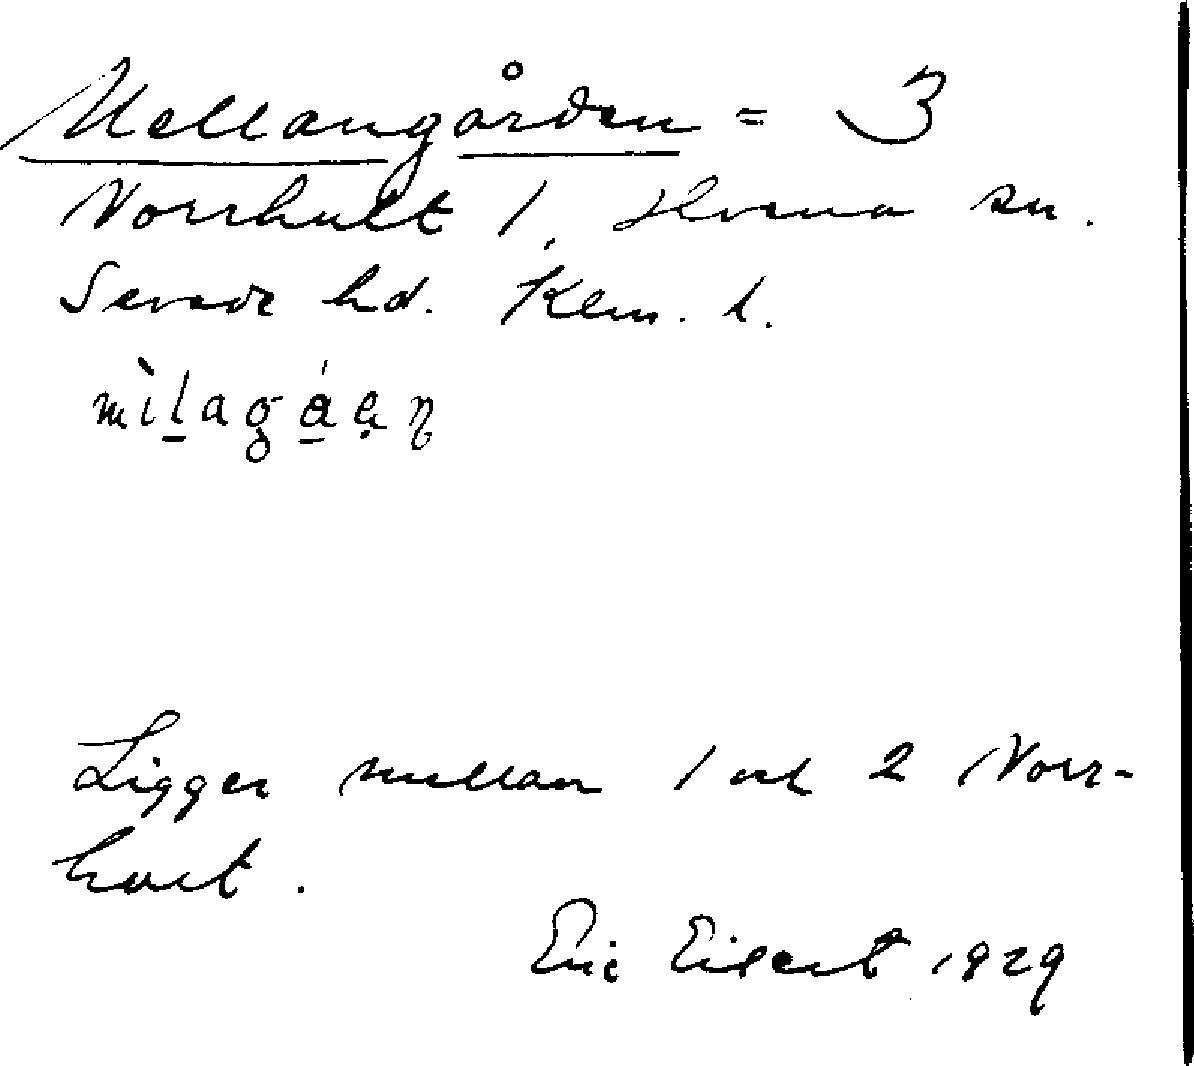 Mellangården = 3
Norrhult 1, Hvena sn.
Sevede hd. Klm. l.
mìḻagá̱ẹɳ
Ligger mellan 1 och 2 Norr-
hult.
Eric Eilert 1929